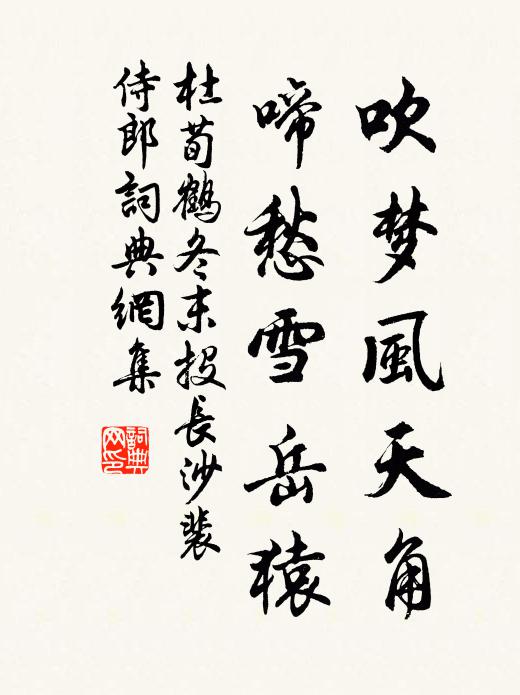 吹梦風天角
啼愁雪岳猿
杜荀鶴冬末投長沙裴
侍郎詞典網集
詞典网印